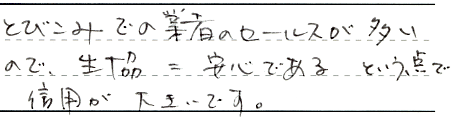 とびこみでの業者のセールスが多い
ので、生協=安心である という点で
信用が大きいです。